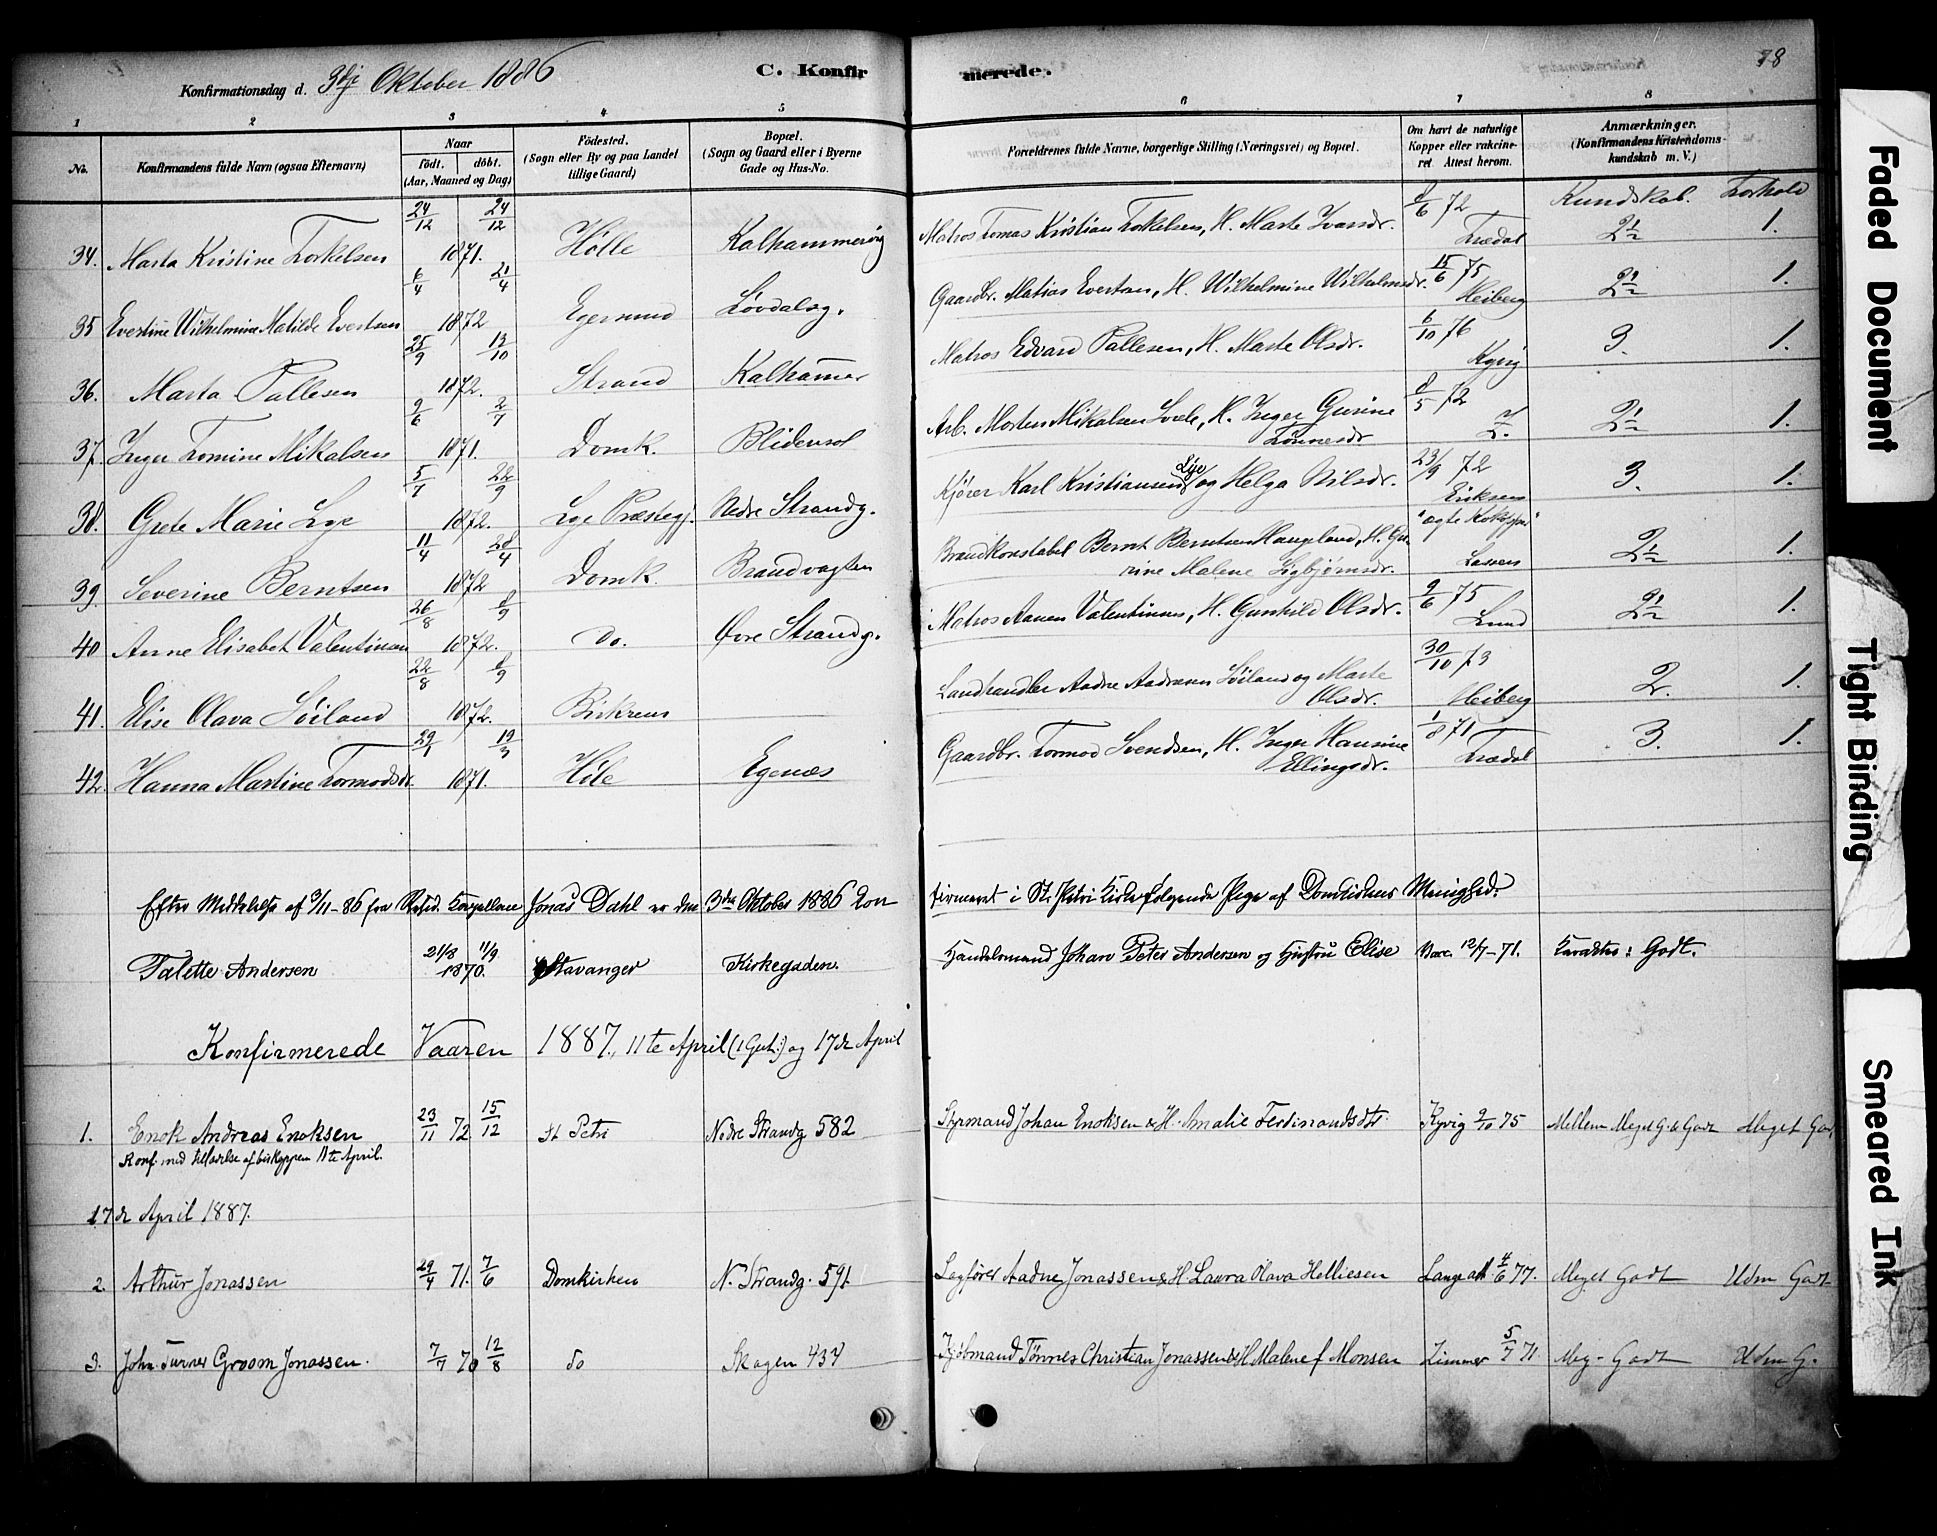 Konfirmationsdag d. 3dj Oktober 1886 C. Konfirmerede. 78
1 2 3 4 5 6 7 8
No. Konfirmandens fulde Navn (ogsaa Efternavn) Naar födt. döbt. (Aar, Maaned og Dag) Födested. (Sogn eller By og paa Landet tillige Gaard) Bopæl. (Sogn og Gaard eller i Byerne Gade og Hus-No. Forældrenes fulde Navne, borgerlige Stilling (Næringsvei) og Bopæl. Om havt de naturlige Kopper eller vakcineret Attest herom. Anmærkninger. (Konfirmandens Kristendomskundskab m. V.)
Kundskab. Forhold
34. Marta Kristine Torkelsen 24/12 24/12 1871. Hølle Kalhammervig Matros Tomas Kristian Torkelsen, H. Marte Ivarsdr. 8/6 72 Trædal 2 1/2 1.
35 Evertine Wilhelmine Matilde Evertsen 6/4 21/4 1872 Egersund Løvdalsg. Gaardbr. Matias Evertsen, H. Wilhelmine Wilhelmsdr. 15/6 75 Heiberg 2 1/2 1.
36. Marta Pallesen 25/9 13/10 1872. Strand Kalhamer Matros Edvard Pallesen, H. Marte Olsdr. 6/10 76 Kyvig 3. 1.
37. Inger Tomine Mikalsen 9/6 2/7 1871. Domk. Blidensol Arb. Morten Mikalsen Svele, H. Inger Gurine Tønnesdr 8/5 72 Z. 2 1/2 1.
38. Grete Marie Lye 5/7 22/9 1872. Lye Præstegj. Nedre Strandg. Kjører Karl Kristiansen Lye og Helga Nilsdr. 23/9 72 Eriksen 3. 1.
39. Severine Berntsen 11/4 28/4 1872 Domk. Brandvagten Brandkonstabel Bernt Berntsen Haugeland, H. Gurine Malene Sigbjørnsdr. "ægte Kokopper" Lassen 2 1/2 1.
40 Anne Elisabet Valentinsen 26/8 8/9 1872. Do. Øvre Strandg. Matros Aanen Valentinsen, H. Gunhild Olsdr. 9/6 75 Lund 2 1/2 1.
41. Elise Olava Søiland 22/8 8/9 1872. Birkrem Landhandler Aadne Aadnesen Søiland og Marte Olsdr. 30/10 73 Heiberg 2. 1.
42. Hanna Martine Tormodsdr. 29/1 19/3 1871. Høle Egenæs Gaardbr. Tormod Svendsen, H. Inger Hansine Ellingsdr. 1/8 71 Trædal 3. 1.
Efter Meddelelse af 3/11-86 fra Resid. Kapellan Jonas Dahl er den 3die Oktober 1886 konfirmeret i St. Petri Kirke følgende Pige af Domkirkens Menighed:
Talette Andersen 21/8 11/9 1870. Stavanger Kirkegaden. Handelsmand Johan Peter Andersen og Hustru Elise Vacc. 12/7-71. Karakter: Godt.
Konfirmerede Vaaren 1887., 11te April (1 Gut:) og 17de April
1. Enok Andreas Enoksen 23/11 72 15/12 St Petri Nedre Strandg 582 Styrmand Johan Enoksen & H. Amalie Ferdinandsdtr Kyvig 9/10 75 Mellem Meget G. & Godt Meget Godt
Konf. med tilladelse af biskoppen 11te April.
17de April 1887.
2. Arthur Jonassen 29/4 71. 7/6 Domkirken N. Strandg. 591 Sagfører Aadne Jonassen & H Laura Olava Helliesen Lange att 4/6 77. Meget Godt Udm Godt
3. John Turner Groom Jonassen. 7/7 70 12/8 do Skagen 434 Kjøbmand Tønnes Christian Jonassen & H Malene f Monsen Zimmer 5/7 71. Meg- Godt Udm G.
Faded Document
Tight Binding
Smeared Ink